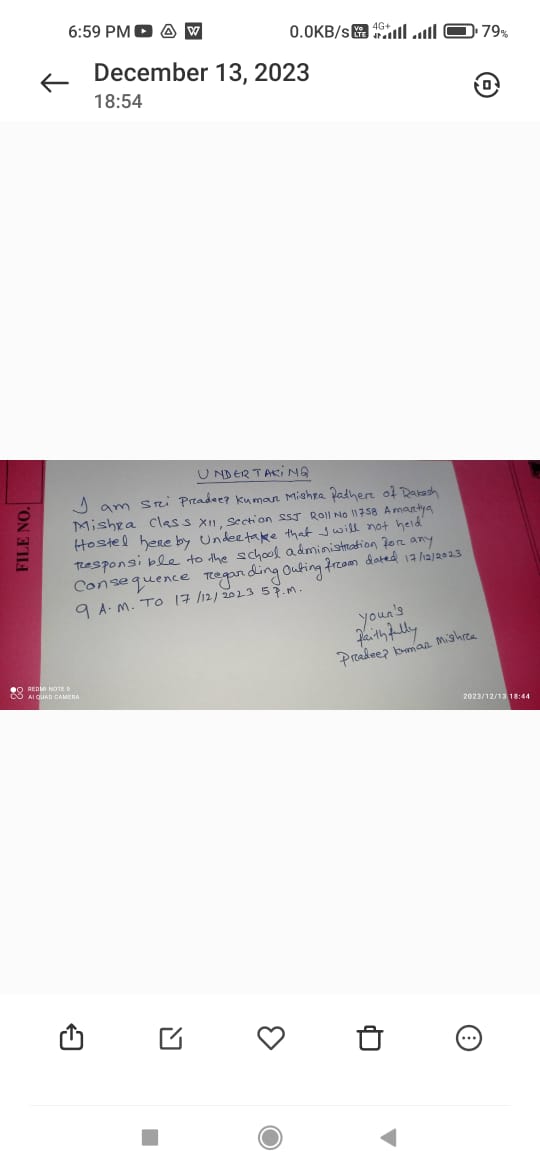 6:59 PM
0.0KB/s
Vo LTE
4G+
79%
December 13, 2023
18:54
FILE NO.
UNDERTAKING
I am Sri Pradeep Kumar Mishra father of Rakesh
Mishra Class XII, Section SSJ Roll No 11758 Amartya
Hostel here by Undertake that I will not held
responsible to the school administration for any
Consequence regarding outing from dated 17/12/2023
9 A.M. TO 17/12/2023 5 P.M.
your's
faithfully
Pradeep kumar Mishra
REDMI NOTE 9
AI QUAD CAMERA
2023/12/13 18:44